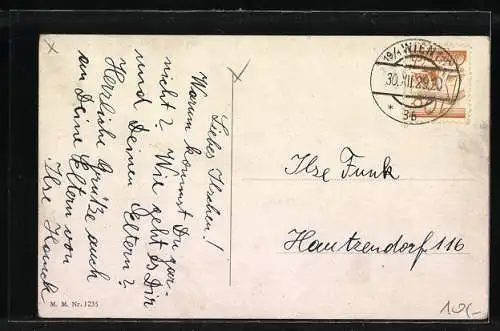 Liebes Ilschen!
Warum kommst Du gar-
nicht? Wie geht es Dir
und Deinen Eltern?
Herzliche Grüße auch
an Deine Eltern von
Ilse
Ilse Funk
Hautzendorf 116
WIEN
30.XII.
* 3b
M. M. Nr. 1235
10,-